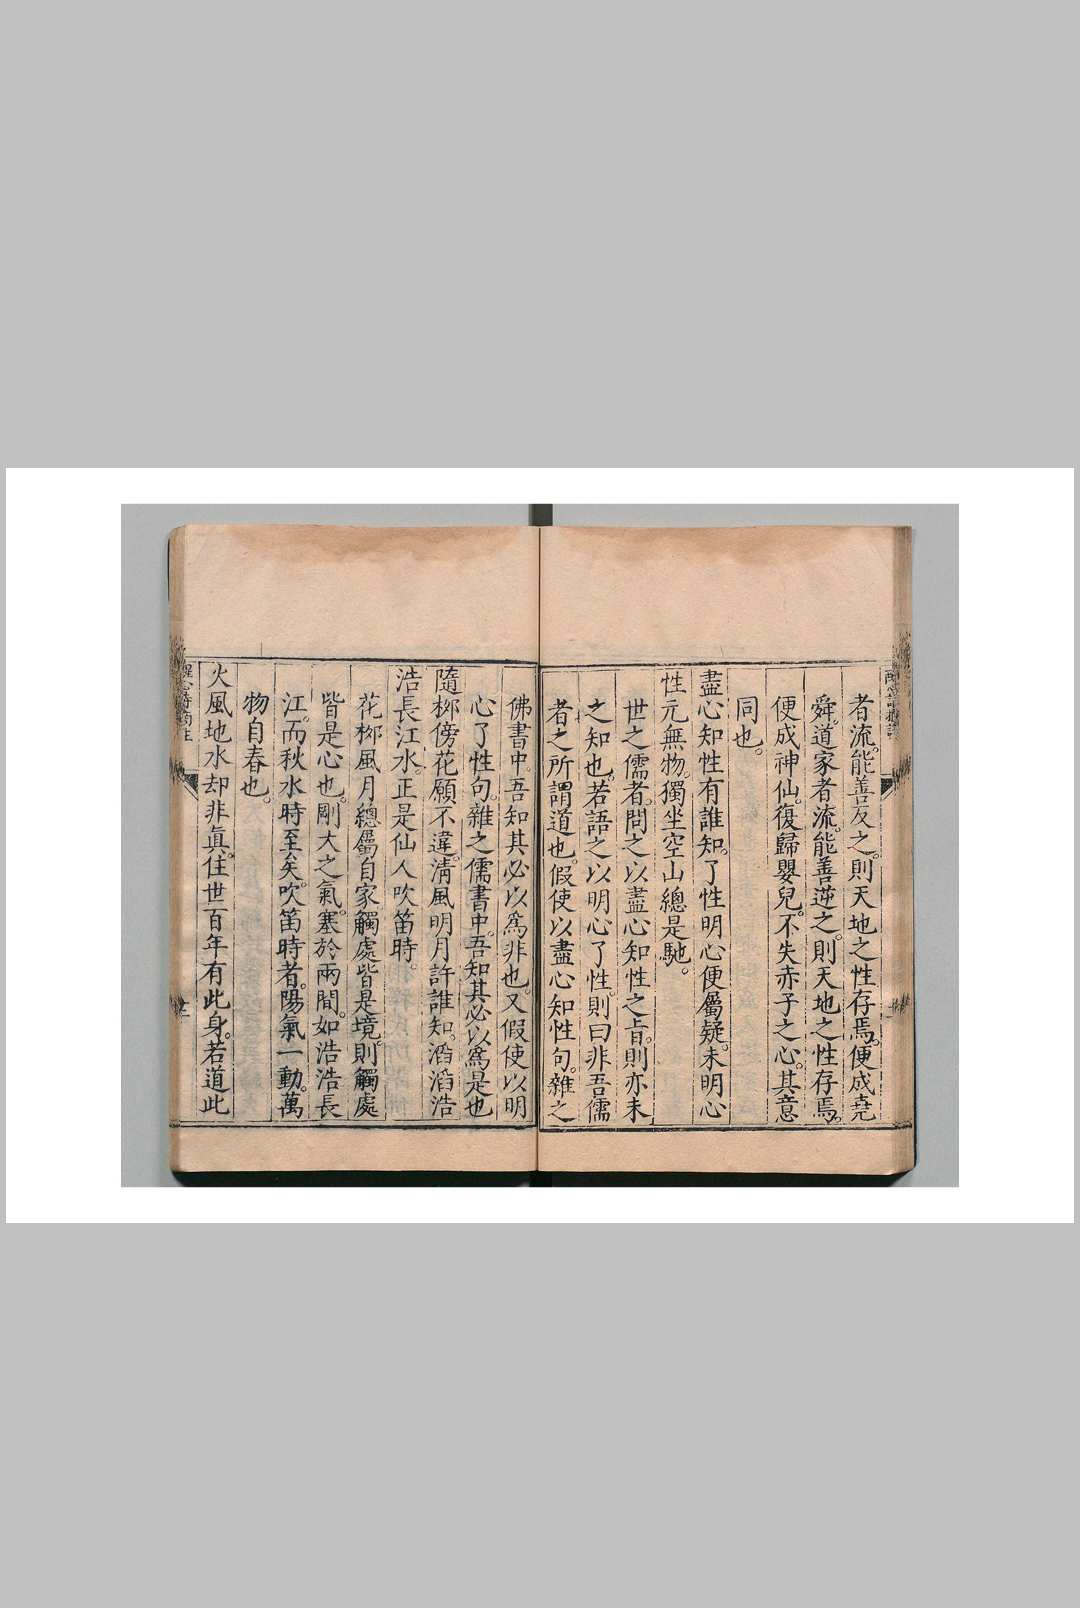 者流。能善反之。則天地之性存焉。便成堯
舜。道家者流。能善逆之。則天地之性存焉。
便成神仙。復歸嬰兒。不失赤子之心。其意
同也。
盡心知性有誰知。了性明心便屬疑。未明心
性元無物。獨坐空山總是馳。
世之儒者。問之以盡心知性之旨。則亦未
之知也。若語之以明心了性。則曰非吾儒
者之所謂道也。假使以盡心知性句。雜之
佛書中。吾知其必以爲非也。又假使以明
心了性句。雜之儒書中。吾知其必以爲是也
隨柳傍花願不違。清風明月許誰知。滔滔浩
浩長江水。正是仙人吹笛時。
花柳風月。總屬自家。觸處皆是境。則觸處
皆是心也。剛大之氣。塞於兩間。如浩浩長
江。而秋水時至矣。吹笛時者。陽氣一動。萬
物自春也。
火風地水却非眞。住世百年有此身。若道此
醒心詩摘註